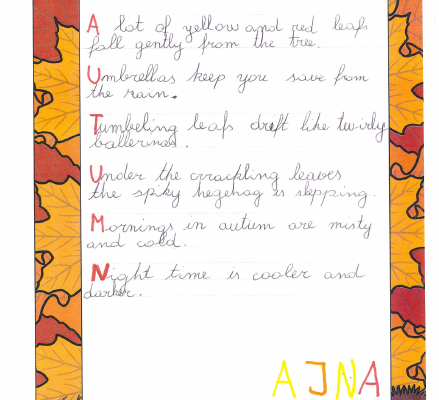 A lot of yellow and red leafs
fall gently from the tree.
Umbrellas keep you save from
the rain.
Tumbeling leafs draft like twirly
ballerinas.
Under the crrackling leaves
the spiky hegehog is slepping.
Mornings in autum are misty
and cold.
Night time is cooler and
darker.
AJNA